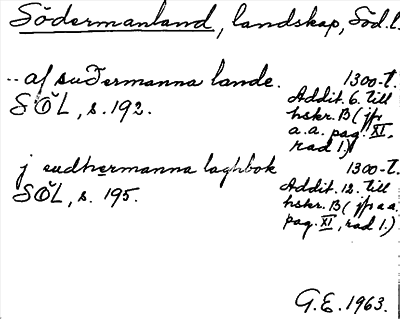 Södermanland, landskap, Söd.l.
-- af suðermanna lande. 1300-t.
SÖL, s. 192. Addit. 6. till
hskr. B (jfr
a.a. pag. XI,
rad 1.)
j sudhermanna laghbok 1300-t.
SÖL, s. 195. Addit. 12. till
hskr. B (jfr a.a.
pag. XI, rad 1.)
G.E. 1963.